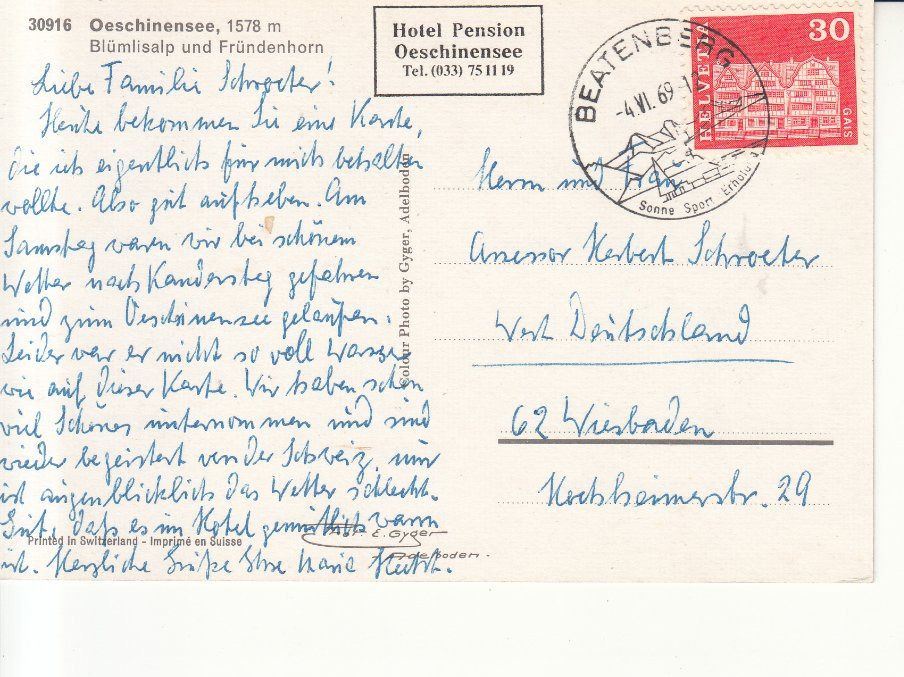 30916 Oeschinensee, 1578 m
Blümlisalp und Fründenhorn
Hotel Pension
Oeschinensee
Tel. (033) 75 11 19
BEATENBERG
-4.VI.69-12
Sonne Sport Erholu
HELVETIA
30
GAIS
Liebe Familie Schroeter!
Heute bekommen Sie eine Karte,
die ich eigentlich für mich behalten
wollte. Also gut aufheben. Am
Samstag waren wir bei schönem
Wetter nach Kandersteg gefahren
und zum Oeschinensee gelaufen.
Leider war er nicht so voll Wasser
wie auf dieser Karte. Wir haben schon
viel Schönes unternommen und sind
wieder begeistert von der Schweiz, nur
ist augenblicklich das Wetter schlecht.
Gut, daß es im Hotel gemütlich warm
ist. Herzliche Grüße Ihre Marie
Colour Photo by Gyger, Adelboden
Printed in Switzerland - Imprimé en Suisse
E. Gyger
Adelboden.
Herrn und Frau
Assessor Herbert Schroeter
West Deutschland
62 Wiesbaden
Hochheimerstr. 29